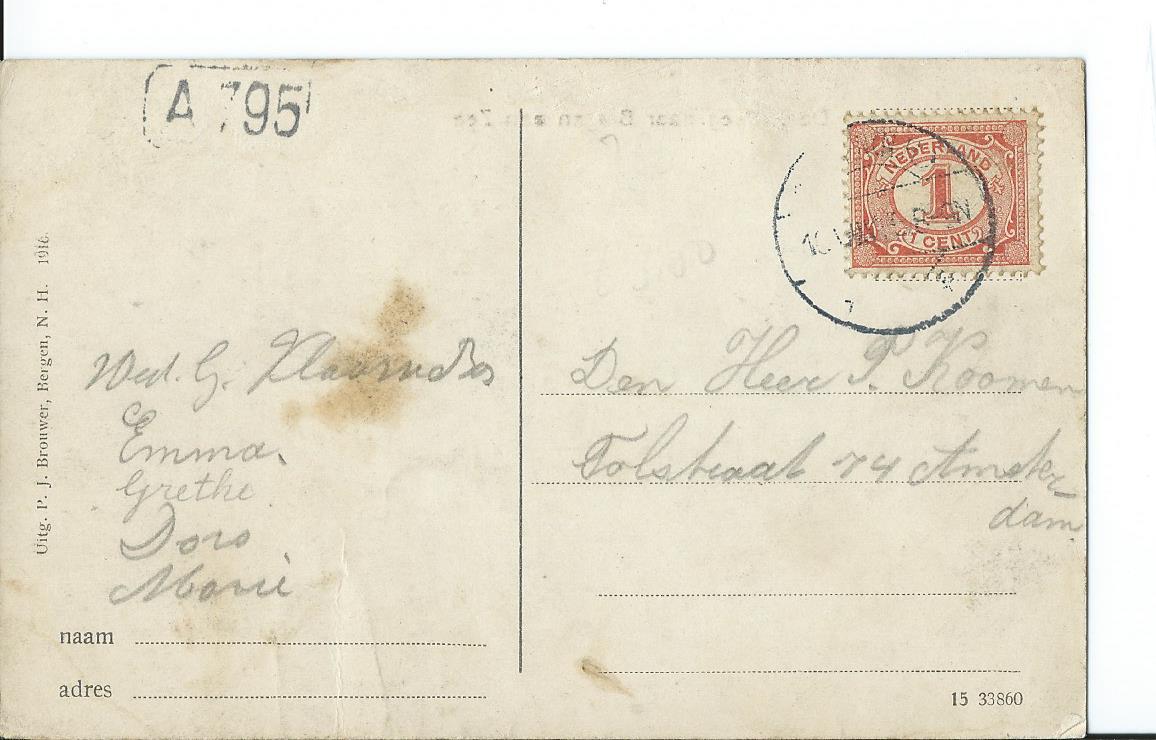 A 795
NEDERLAND
1
1 CENT
Uitg. P. J. Brouwer, Bergen, N. H. 1916.
Wed. G.
Emma.
Grethe
Doro
Marie
Den Heer P. Koomen
Tolstraat 74 Amster
dam
naam
adres
15 33860